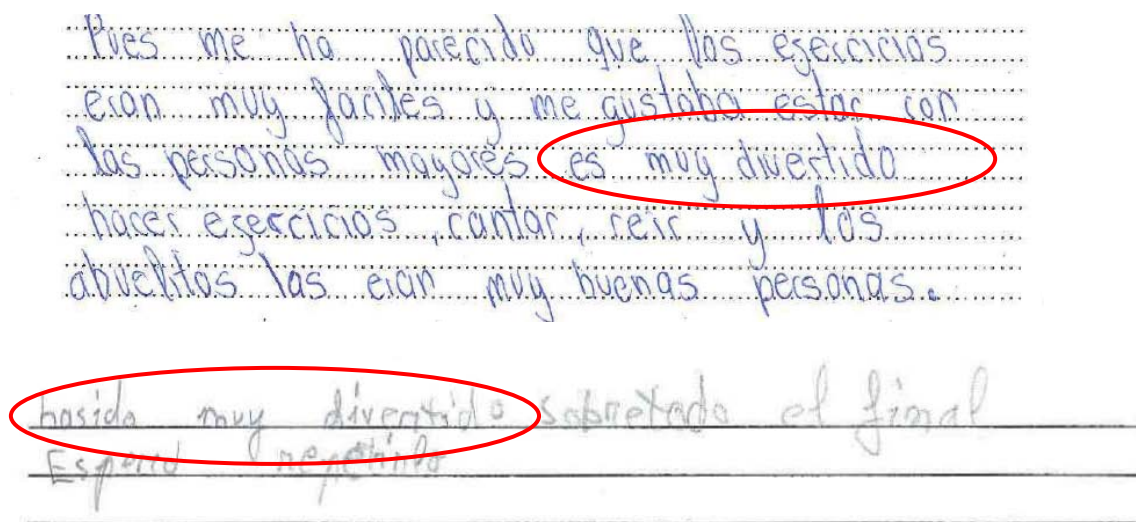 Pues me ha parecido que los egercicios
eran muy faciles y me gustaba estar con
las personas mayores es muy divertido
hacer egercicios, cantar, reir y los
abuelitos las eran muy buenas personas.
hasido muy divertido sobretodo el final
Espero repetirlo